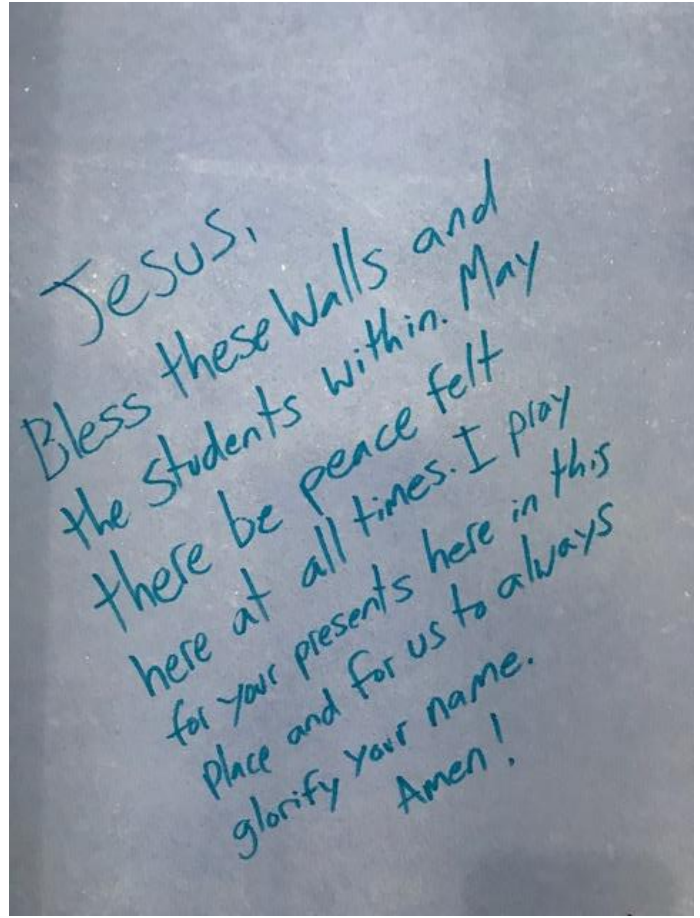 Jesus,
Bless these Walls and
the Students within. May
there be peace felt
here at all times. I pray
for your presents here in this
place and for us to always
glorify your name.
Amen!